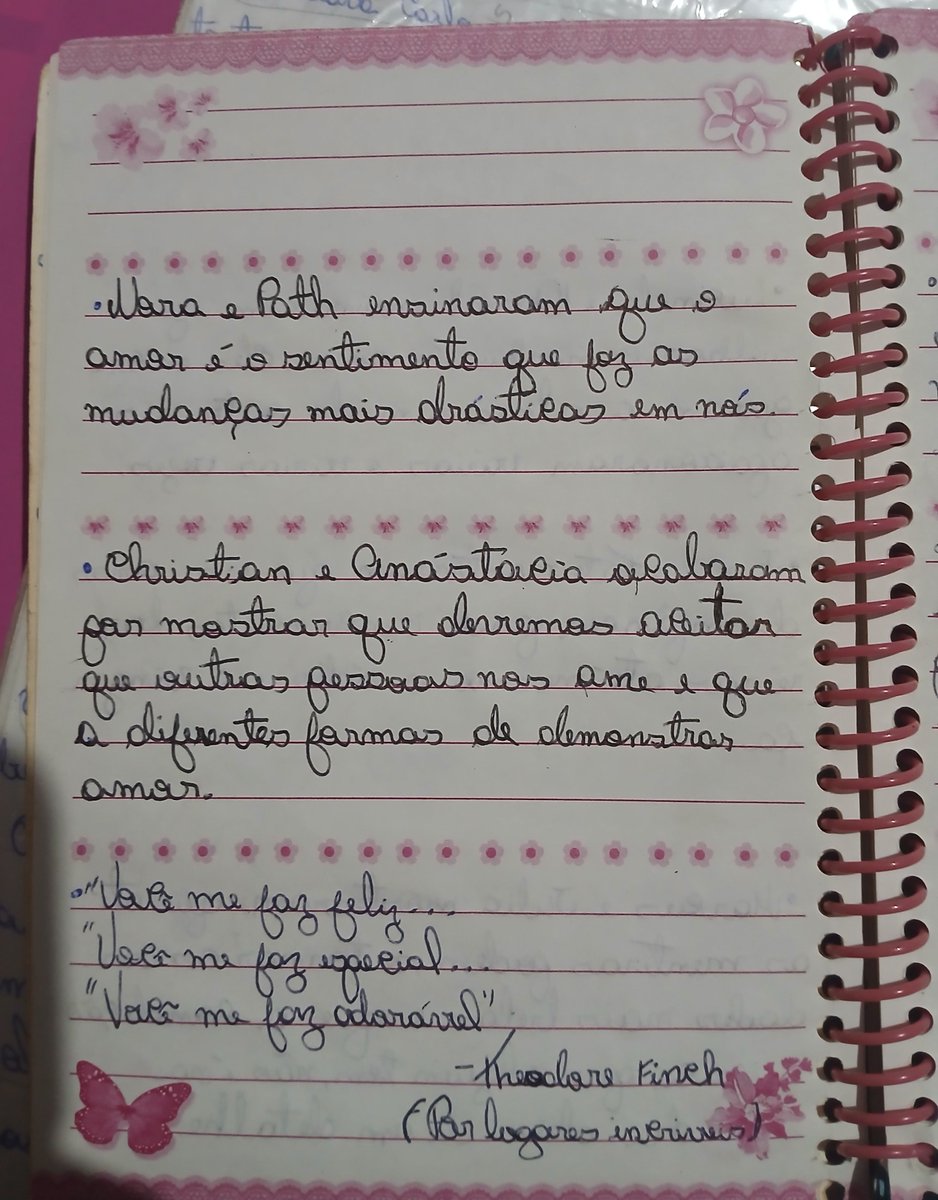 •Nora e Path ensinaram que o
amor é o sentimento que faz as
mudanças mais drásticas em nós.
•Christian e Anástácia acabaram
por mostrar que devemos aceitar
que outras pessoas nos ame e que
a diferentes formas de demonstras
amor.
•"Você me faz feliz...
"Você me faz especial...
"Você me faz adorável"
-Theodore Finch
(Por lugares incriveis)